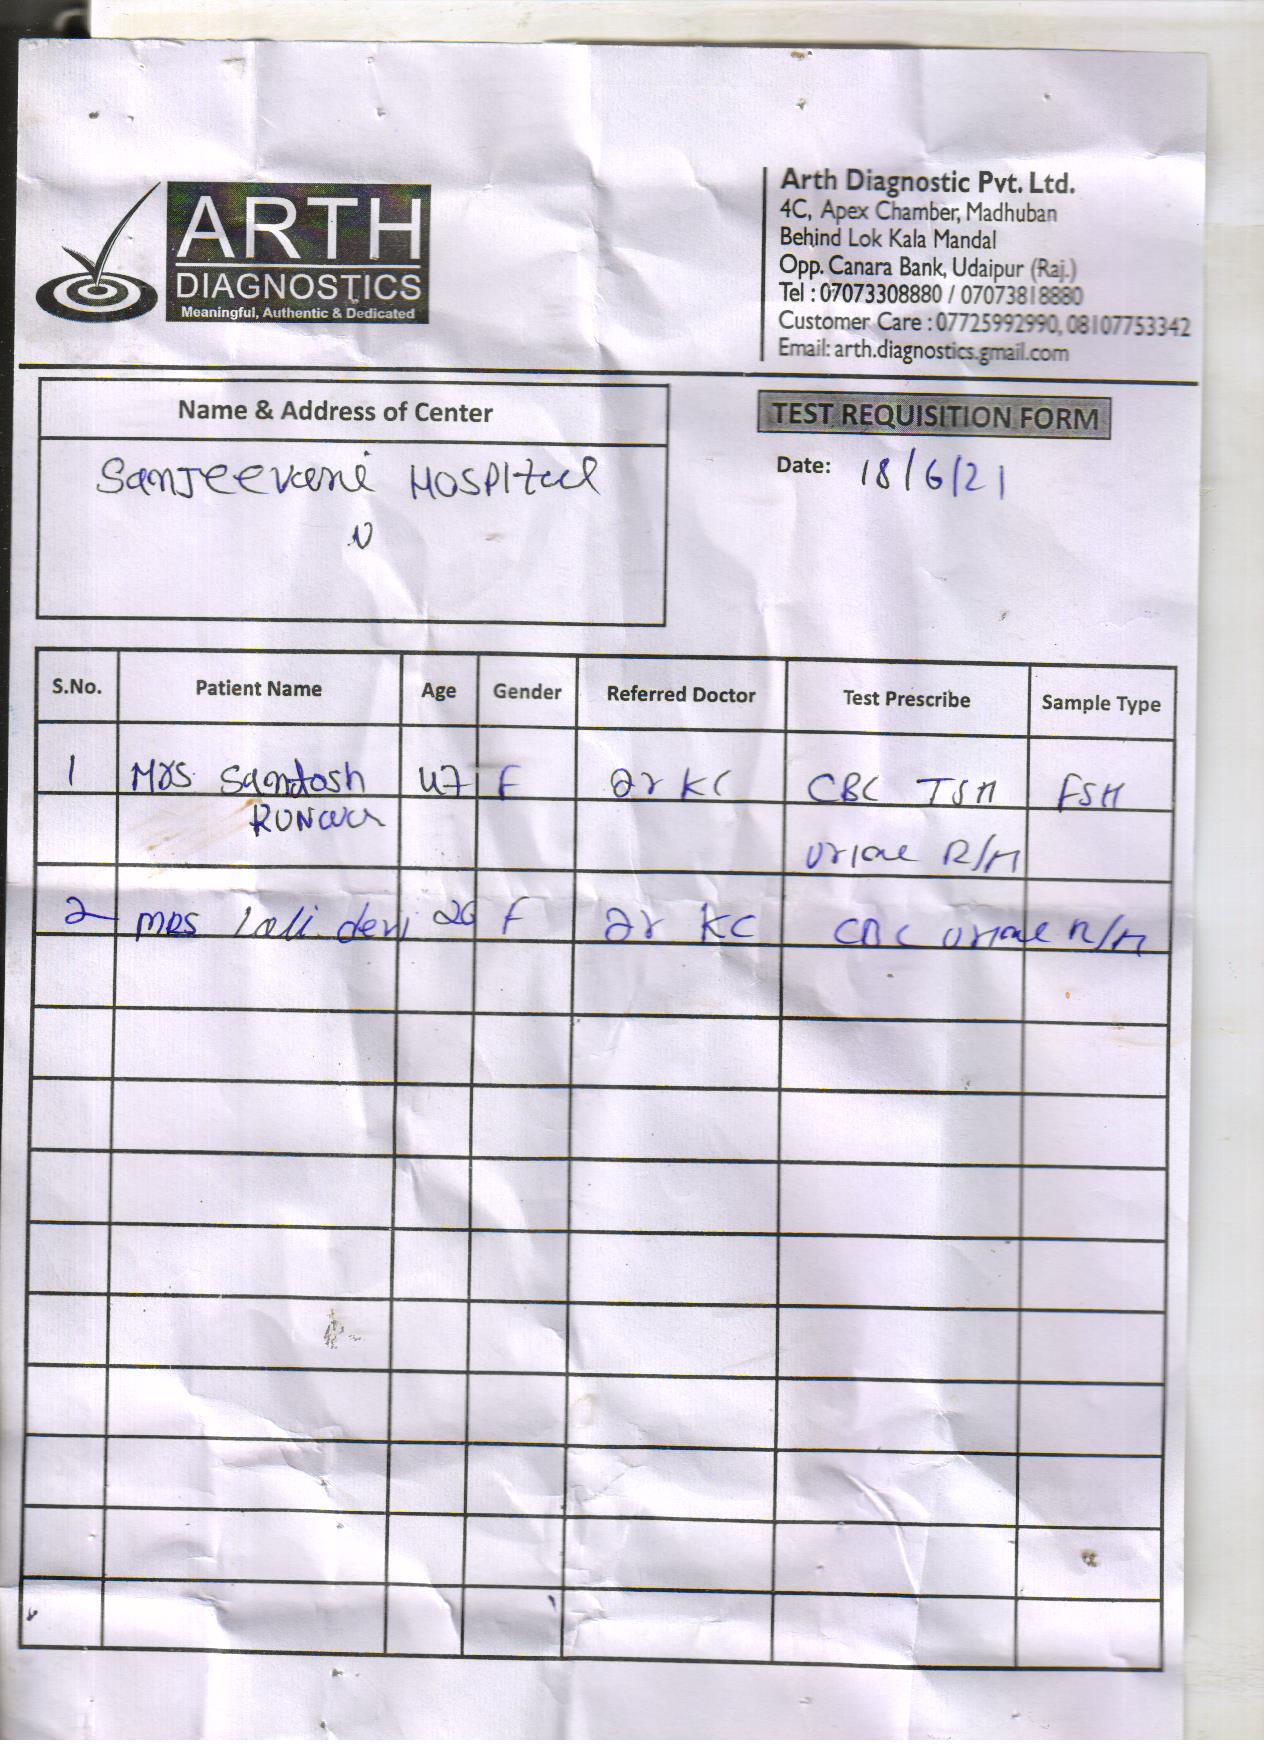 ARTH
DIAGNOSTICS
Meaningful, Authentic & Dedicated
Arth Diagnostic Pvt. Ltd.
4C, Apex Chamber, Madhuban
Behind Lok Kala Mandal
Opp. Canara Bank, Udaipur (Raj.)
Tel : 07073308880 / 07073818880
Customer Care : 07725992990, 08107753342
Email: arth.diagnostics.gmail.com
Name & Address of Center
Sanjeevani Hospital
TEST REQUISITION FORM
Date: 18/6/21
S.No. Patient Name Age Gender Referred Doctor Test Prescribe Sample Type
1 Mrs Santosh 47 F Dr KC CBC TSH FSH
Urine R/M
2 MRS Lali devi 26 F Dr KC CBC Urine R/M